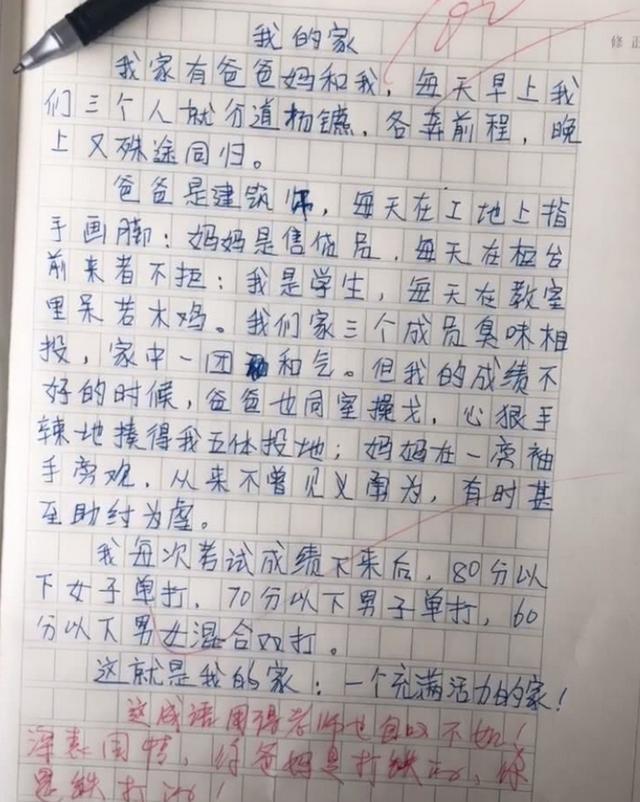 我的家
修正
我家有爸爸妈和我，每天早上我
们三个人就分道扬镳，各奔前程，晚
上又殊途同归。
爸爸是建筑师，每天在工地上指
手画脚；妈妈是售货员，每天在柜台
前来者不拒；我是学生，每天在教室
里呆若木鸡。我们家三个成员臭味相
投，家中一团和气。但我的成绩不
好的时候，爸爸也同室操戈，心狠手
辣地揍得我五体投地；妈妈在一旁袖
手旁观，从来不曾见义勇为，有时甚
至助纣为虐。
我每次考试成绩下来后，80分以
下女子单打，70分以下男子单打，60
分以下男女混合双打。
这就是我的家：一个充满活力的家！
这成语用得老师也自叹不如！
深表同情，你爸妈是打铁的，你
是铁打的！